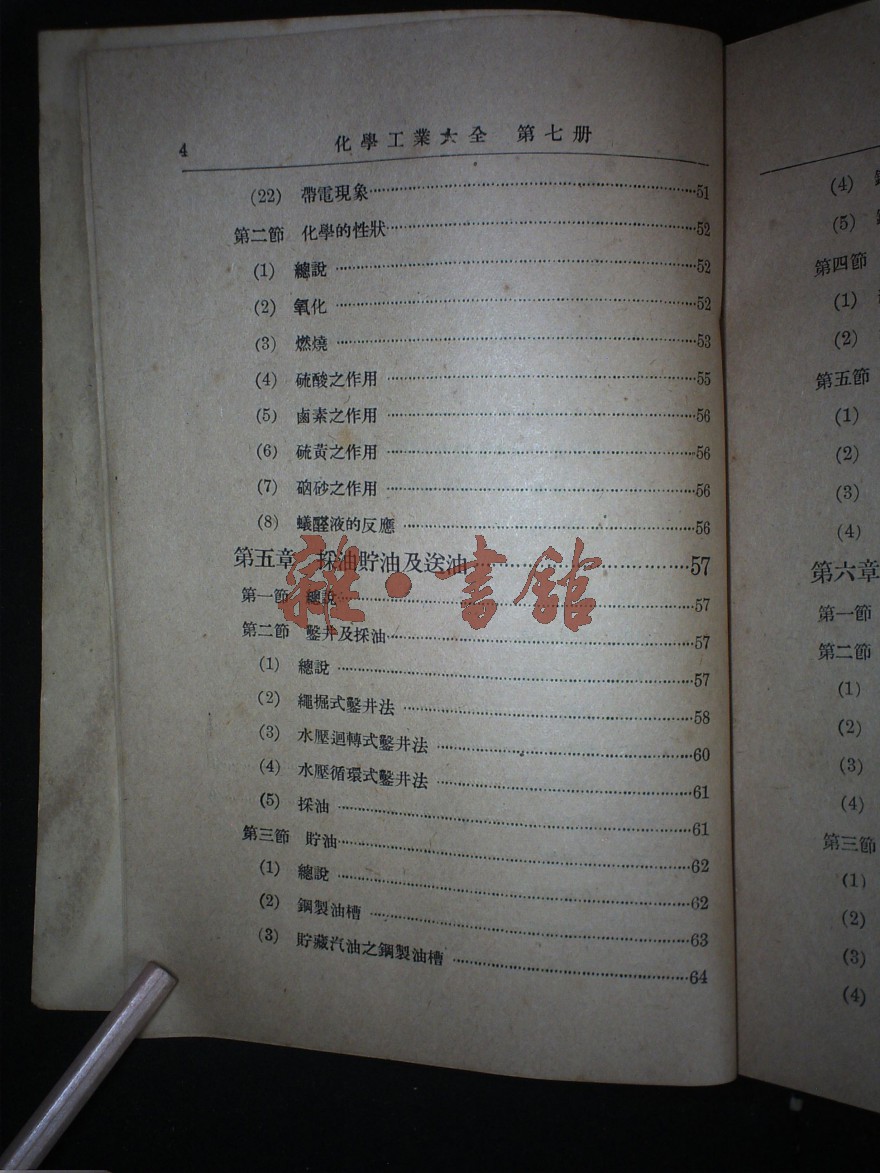 4 化學工業大全 第七册
(22) 帶電現象……51
第二節 化學的性狀……52
(1) 總說……52
(2) 氧化……52
(3) 燃燒……53
(4) 硫酸之作用……55
(5) 鹵素之作用……56
(6) 硫黃之作用……56
(7) 硇砂之作用……56
(8) 蟻醛液的反應……56
第五章 採油貯油及送油……57
第一節 總說……57
第二節 鑿井及採油……57
(1) 總說……57
(2) 繩掘式鑿井法……58
(3) 水壓迴轉式鑿井法……60
(4) 水壓循環式鑿井法……61
(5) 採油……61
第三節 貯油……62
(1) 總說……62
(2) 鋼製油槽……63
(3) 貯藏汽油之鋼製油槽……64
雜·書館
(4)
(5)
第四節
(1)
(2)
第五節
(1)
(2)
(3)
(4)
第六章
第一節
第二節
(1)
(2)
(3)
(4)
第三節
(1)
(2)
(3)
(4)